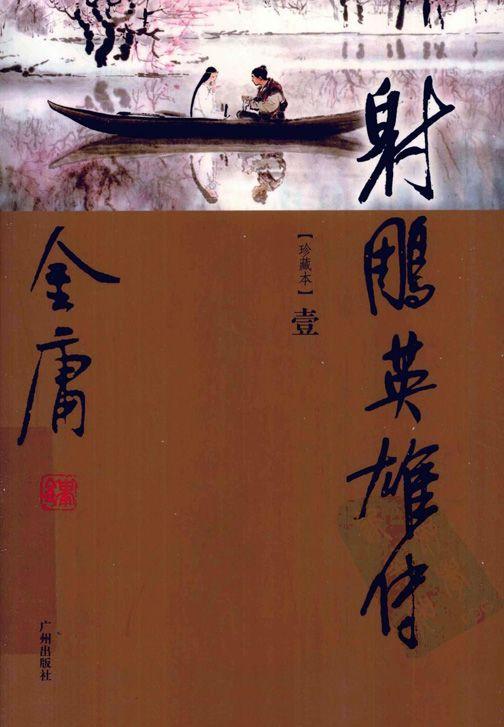 射鵰英雄传
【珍藏本】壹
金庸
广州出版社